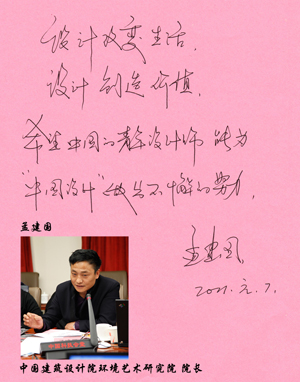 设计改变生活,
设计创造价值,
希望中国的青年设计师 能为
"中国设计"做出不懈的努力,
孟建国
孟建国
2021.元.7.
中国建筑设计院环境艺术研究院 院长